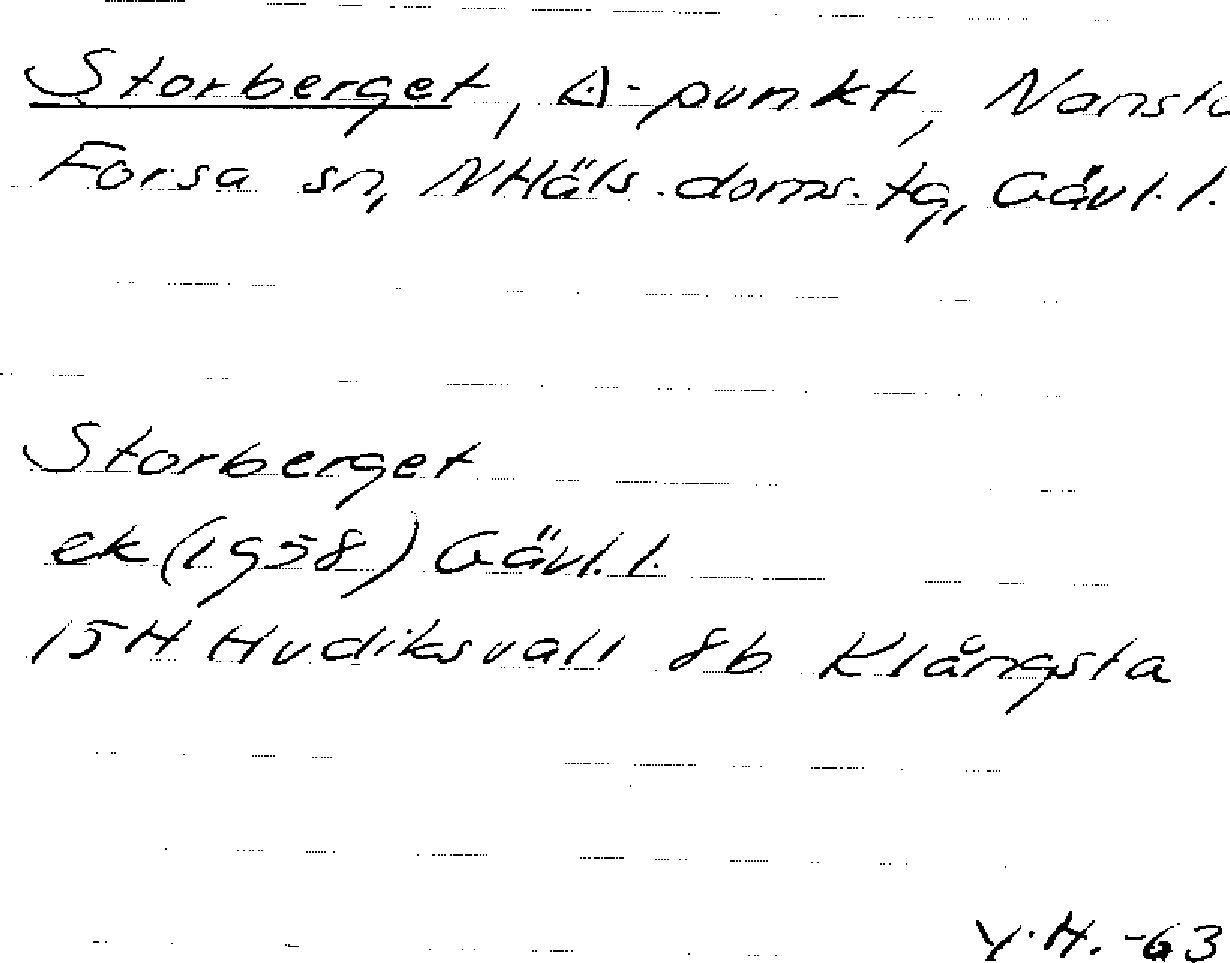 Storberget, ∆-punkt,
Forsa sn, NHäls. doms. tg, Gävl. l.
Storberget
ek (1958) Gävl. l.
15H Hudiksvall 8b Klångsta
Y.H. -63